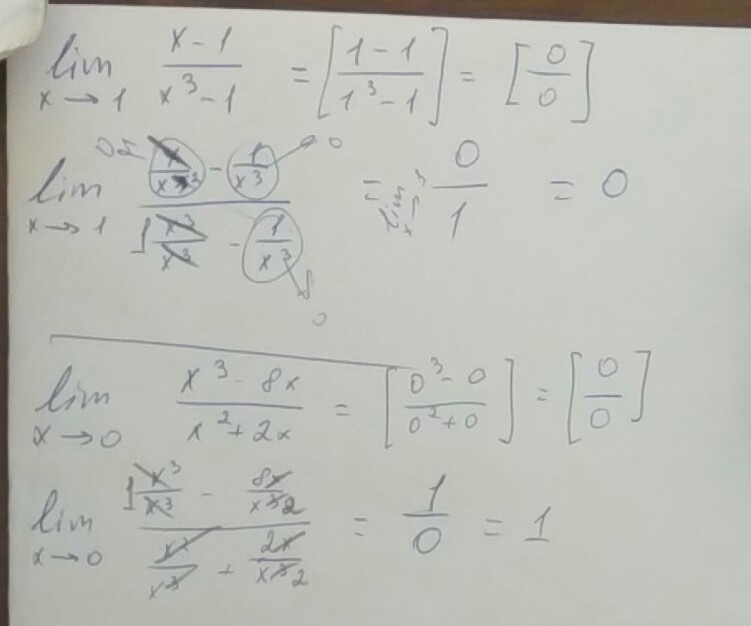 lim x→1 (x-1)/(x³-1) = [(1-1)/(1³-1)] = [0/0]
lim x→1 (x/x³² - 1/x³)/(1 x³/x³ - 1/x³) = lim x→1 0/1 = 0
0
0
lim x→0 (x³-8x)/(x²+2x) = [(0³-0)/(0²+0)] = [0/0]
lim x→0 (1 x³/x³ - 8x/x³2)/(x²/x³ + 2x/x³2) = 1/0 = 1